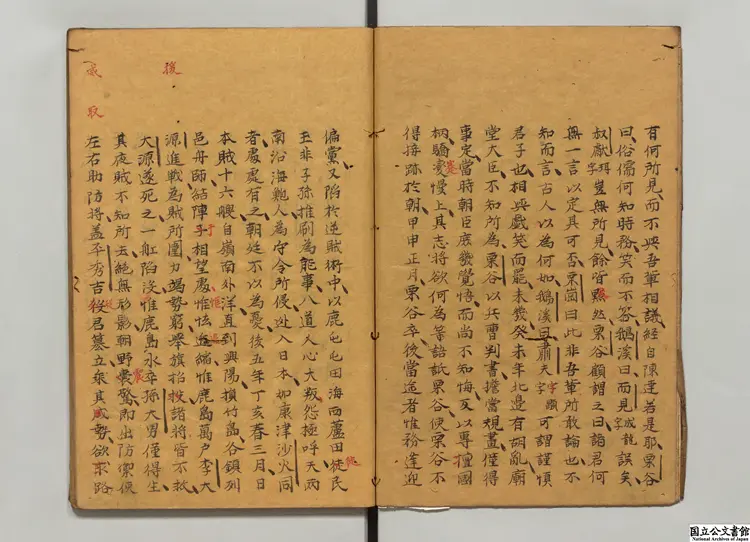 有何所見而不與吾輩相議經自陳達若是耶栗谷
曰俗儒何知時務笑而不答鵝溪曰而見成龍字誤矣
叔獻珥字豈無所見餘皆默然栗谷顧謂之曰諸君何
無一言以定其可否栗園曰此非吾輩所敢論也不
知而言古人以為何如鵝溪曰肅夫宇顒字可謂謹慎
君子也相與戲笑而罷未幾癸未年北邊有胡亂廟
堂大臣不知所為栗谷以兵曹判書擔當規畫僅得
事定當時朝臣庶幾覺悟而尚不知悔反以專擅國
柄驕蹇慢上其志將欲何為等語詆栗谷使栗谷不
得接跡於朝甲申正月栗谷卒後當途者惟務逢迎
後
或
取
偏黨又陷於逆賊術中以鹿屯屯田海西蘆田徙民
至非子孫推刷為能事八道人心大叛怨極呼天兩
南沿海鮑人為守令所侵迯入日本如康津沙火同
者處處有之朝廷不以為憂後五年丁亥春三月日
本賊十六艘自嶺南外洋直到興陽損竹島各鎮列
邑舟師結陣于相望處惟怯退縮惟鹿島萬戶李大
源進戰為賊所圍力竭勢窮擧旗招救諸將皆不救
大源遂死之一舡陷沒惟鹿島水卒孫大男僅得生
其夜賊不知所去絕無形影朝野震驚即出防禦使
左右助防將盖平秀吉殺君簒立乘其威勢欲來路
国立公文書館
National Archives of Japan